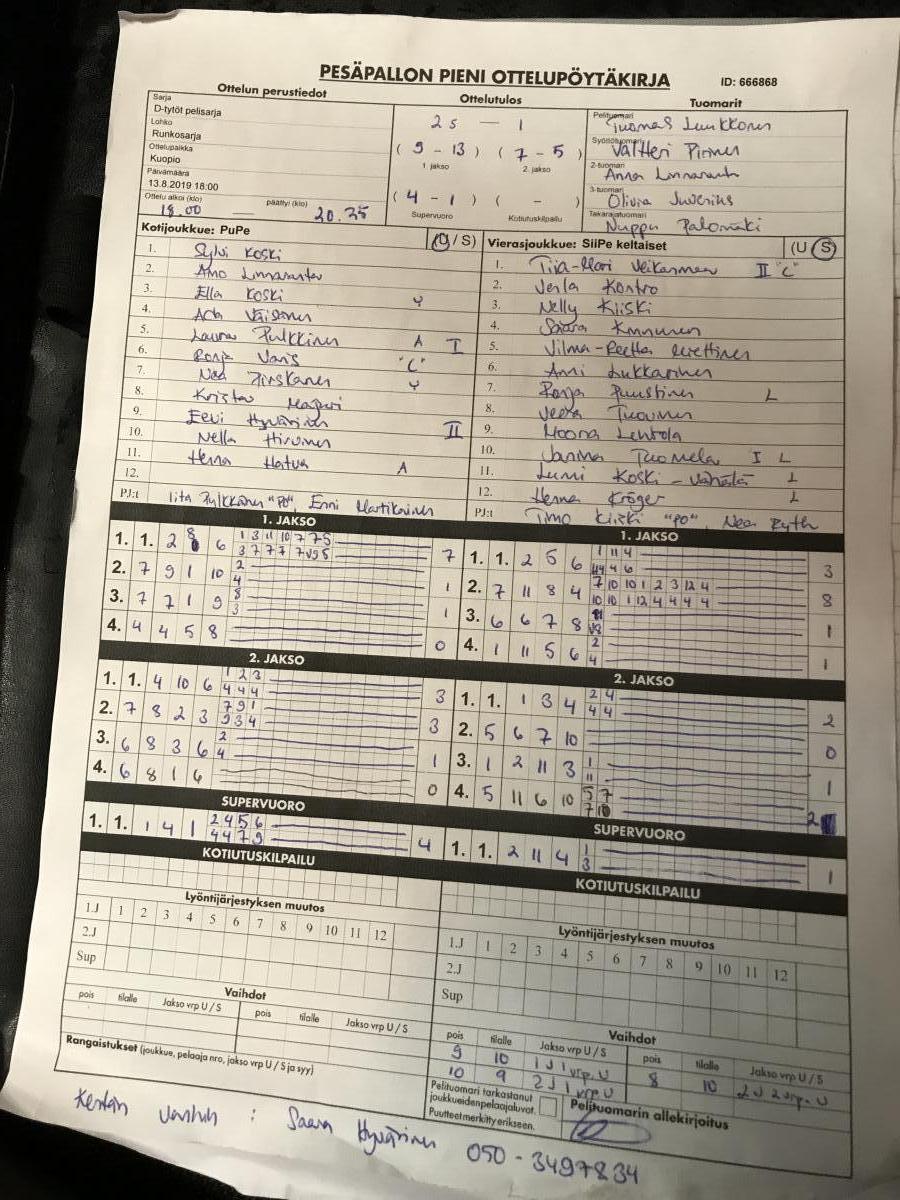 PESÄPALLON PIENI OTTELUPÖYTÄKIRJA
ID: 666868
Ottelun perustiedot
Sarja
D-tytöt pelisarja
Lohko
Runkosarja
Ottelupaikka
Kuopio
Päivämäärä
13.8.2019 18:00
Ottelu alkoi (klo) päättyi (klo)
18.00 — 20.35
Ottelutulos
2s — 1
(9 - 13) (7 - 5)
1. jakso 2. jakso
(4 - 1) ( - )
Supervuoro Kotiutuskilpailu
Tuomarit
Pelituomari
Tuomas
Syöttötuomari
Valtteri Pirinen
2-tuomari
Anna Linnaranta
3-tuomari
Olivia
Takarajatuomari
Nuppu Palomäki
Kotijoukkue: PuPe (U / S)
1. Sylvi Koski
2. Aino Linnaranta
3. Ella Koski Y
4. Väisänen
5. Laura Pulkkinen A I
6. Ronja Varis "C"
7. Y
8. Krista
9. Eevi Hyvärinen
10. Nella Hirvonen II
11. Henna A
12.
PJ:t Iita Pulkkinen "PO", Enni Martikainen
Vierasjoukkue: SiiPe keltaiset (U / S)
1. Tiia-Mari II "C"
2. Venla Kontro
3. Nelly Kiiski
4. Saara Kinnunen
5. Vilma-Reetta Miettinen
6. Anni Lukkarinen
7. Ronja Puustinen L
8. Veera Tuovinen
9. Noona Lehtola
10. Janina Tuomela I L
11. Lumi Koski-Vähälä L
12. Henna Kröger L
PJ:t Timo Kiiski "PO", Neea Ryth
1. JAKSO
1. 1. 2 8 6 1 3 11 10 7 7 5 7
3 7 7 7 7 9 5
2. 7 9 1 10 2 1
4
3. 7 7 1 9 8 1
3
4. 4 4 5 8 0
1. JAKSO
1. 1. 2 5 6 1 11 4 3
4 6
2. 7 11 8 4 7 10 10 1 2 3 12 4 8
10 10 1 12 4 4 4 4
3. 6 6 7 8 1
4. 1 11 5 6 2 1
4
2. JAKSO
1. 1. 4 10 6 1 2 3 3
4 4 4
2. 7 8 2 3 7 9 1 3
9 3 4
3. 6 8 3 6 2 1
4
4. 6 8 1 6 0
2. JAKSO
1. 1. 1 3 4 2 4 2
4 4
2. 5 6 7 10 0
3. 1 2 11 3 1 1
11
4. 5 11 6 10 5 7 2
7 10
SUPERVUORO
1. 1. 1 4 1 2 4 5 6 4
4 4 7 9
SUPERVUORO
1. 1. 2 11 4 1 1
3
KOTIUTUSKILPAILU
KOTIUTUSKILPAILU
Lyöntijärjestyksen muutos
1.J 1 2 3 4 5 6 7 8 9 10 11 12
2.J
Sup
Lyöntijärjestyksen muutos
1.J 1 2 3 4 5 6 7 8 9 10 11 12
2.J
Sup
Vaihdot
pois tilalle Jakso vrp U / S pois tilalle Jakso vrp U / S
Vaihdot
pois tilalle Jakso vrp U / S pois tilalle Jakso vrp U / S
9 10 1 J 1 vrp. U 8 10 2 J 2 vrp. U
10 9 2 J 1 vrp U
Rangaistukset (joukkue, pelaaja nro, jakso vrp U / S ja syy)
Pelituomari tarkastanut
joukkueiden pelaajaluvat.
Puutteet merkitty erikseen.
Pelituomarin allekirjoitus
Kentän vanhin : Saara Hyvärinen 050 - 3497834